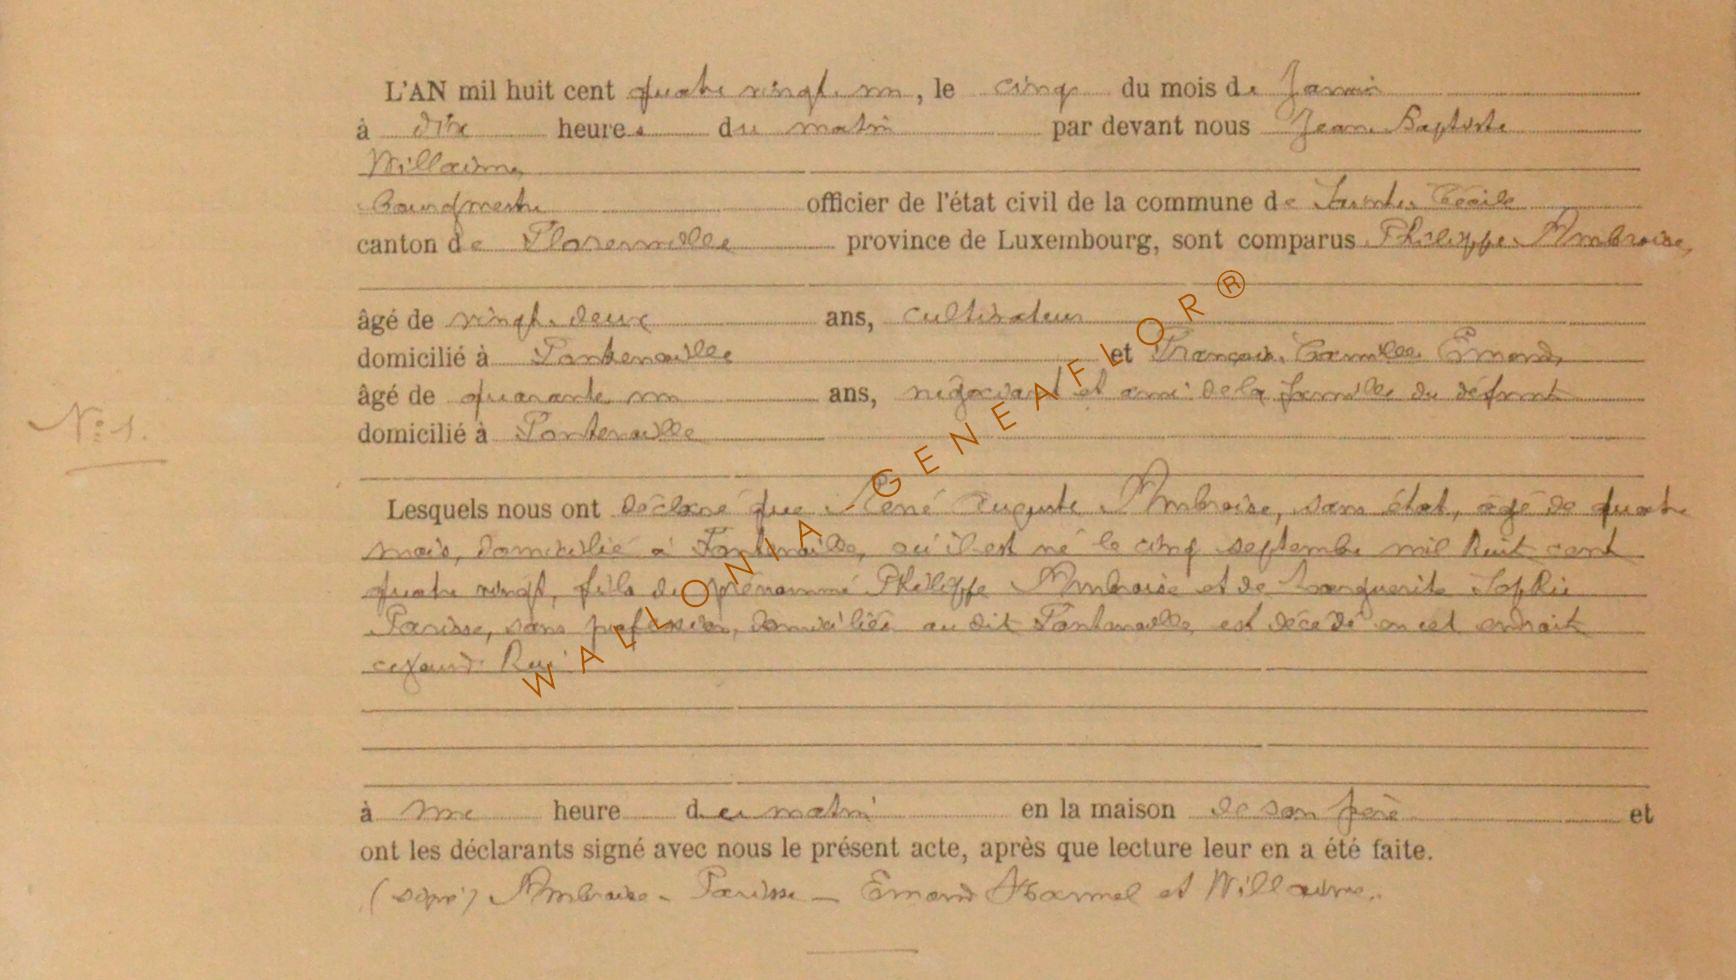 L'AN mil huit cent quatre vingt un, le cinq du mois de Janvier
à dix heures du matin par devant nous Jean Baptiste
Willaume,
bourgmestre officier de l'état civil de la commune de Sainte Cécile
canton de Florenville province de Luxembourg, sont comparus Philippe Ambroise,
âgé de vingt deux ans, cultivateur
domicilié à Fontenoille et François Camille Émond,
âgé de quarante un ans, négociant et ami de la famille du défunt
N° 1.
domicilié à Fontenoille
Lesquels nous ont déclaré que René Auguste Ambroise, sans état, âgé de quatre
mois, domicilié à Fontenoille, où il est né le cinq septembre mil huit cent
quatre vingt, fils du prénommé Philippe Ambroise et de Marguerite Sophie
Parisse, sans profession, domiciliés au dit Fontenoille, est décédé en cet endroit
cejourd'hui
à une heure du matin en la maison de son père et
ont les déclarants signé avec nous le présent acte, après que lecture leur en a été faite.
(signé) Ambroise - Parisse - Émond et Willaume.
WALLONIA GENEAFLOR®